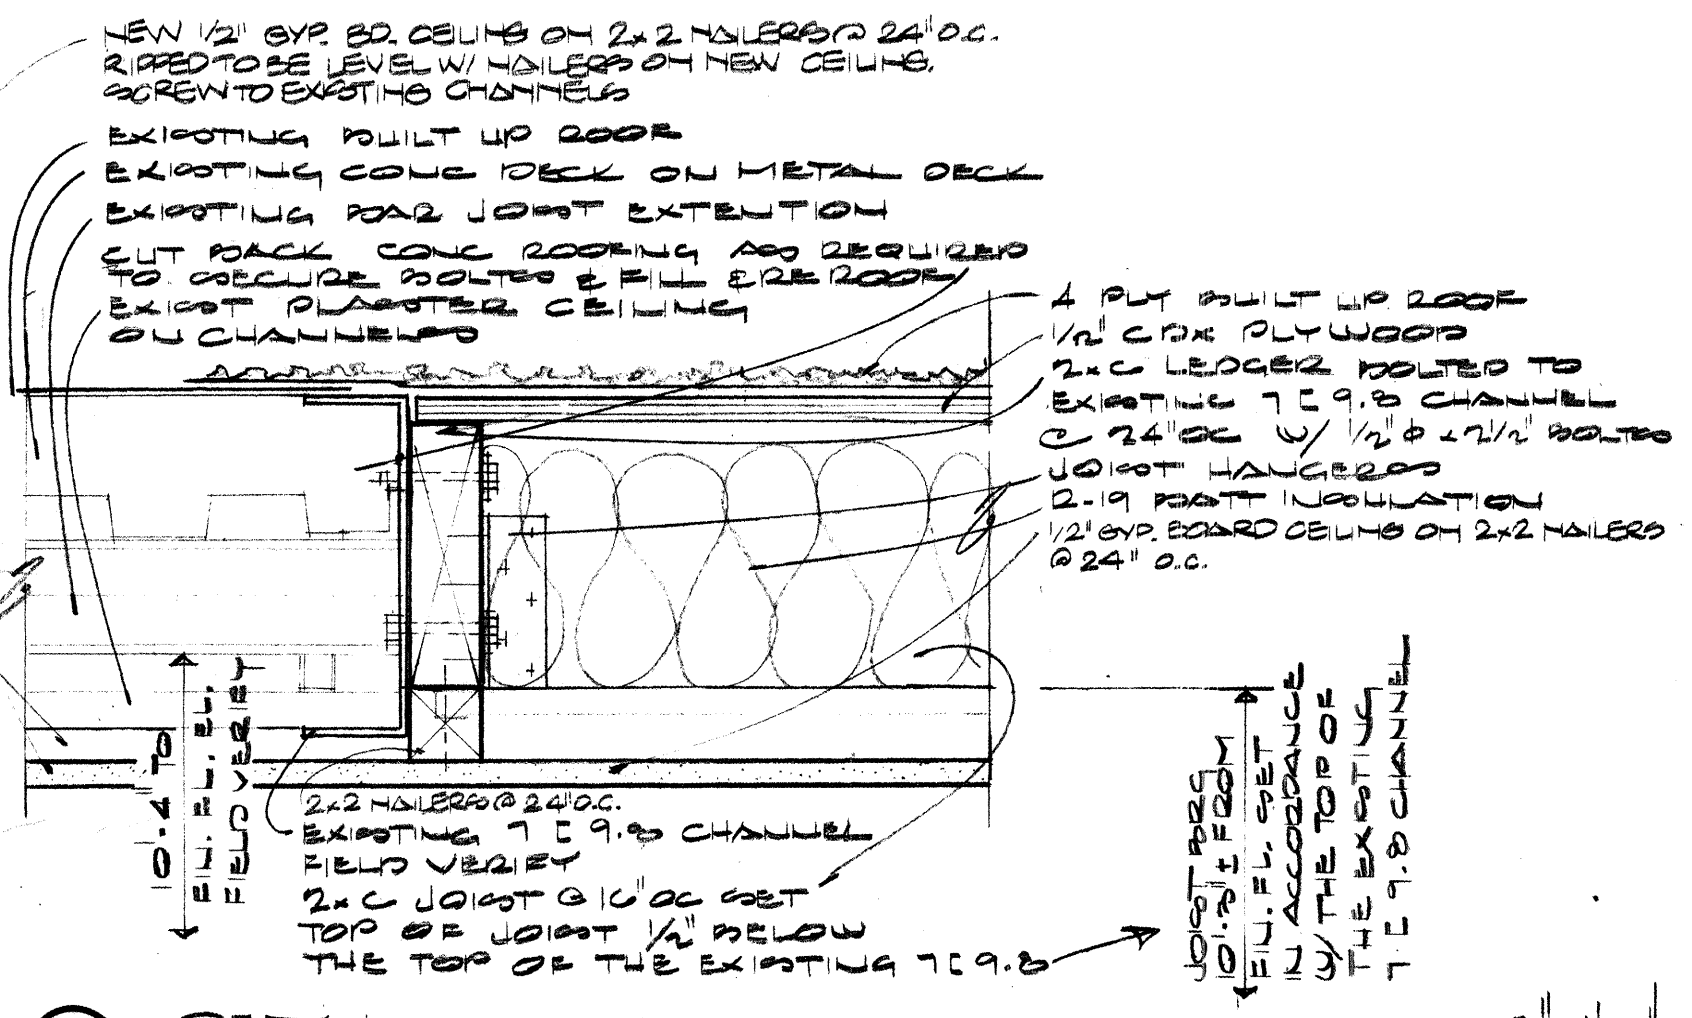 NEW 1/2" GYP. BD. CEILING ON 2x2 NAILERS @ 24" O.C.
RIPPED TO BE LEVEL W/ NAILERS ON NEW CEILING.
SCREW TO EXISTING CHANNELS
EXISTING BUILT UP ROOF
EXISTING CONC DECK ON METAL DECK
EXISTING BAR JOIST EXTENTION
CUT BACK CONC ROOFING AS REQUIRED
TO SECURE BOLTS & FILL & REROOF
EXIST PLASTER CEILING
ON CHANNELS
4 PLY BUILT UP ROOF
1/2" CDX PLYWOOD
2x6 LEDGER BOLTED TO
EXISTING 7 [ 9.8 CHANNEL
@ 24" OC W/ 1/2" Φ x 2 1/2" BOLTS
JOIST HANGERS
R-19 BATT INSULATION
1/2" GYP. BOARD CEILING ON 2x2 NAILERS
@ 24" O.C.
10'.4" TO
FIN. FL. EL.
FIELD VERIFY
2x2 NAILERS @ 24" O.C.
EXISTING 7 [ 9.8 CHANNEL
FIELD VERIFY
2x6 JOIST @ 16" OC SET
TOP OF JOIST 1/2" BELOW
THE TOP OF THE EXISTING 7 [ 9.8
JOIST BRG
10'.8" ± FROM
FIN. FL. SET
IN ACCORDANCE
W/ THE TOP OF
THE EXISTING
7 [ 9.8 CHANNEL